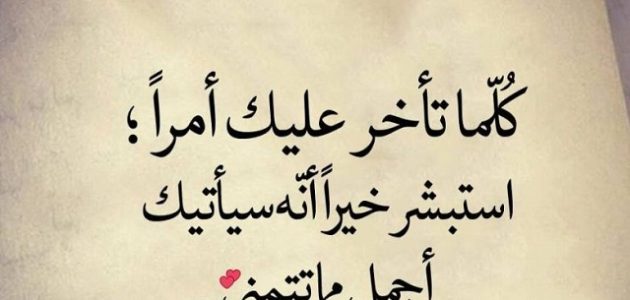 كُلّما تأخر عليك أمراً ؛
استبشر خيراً أنّه سيأتيك
أجمل ما تتمنى 💕